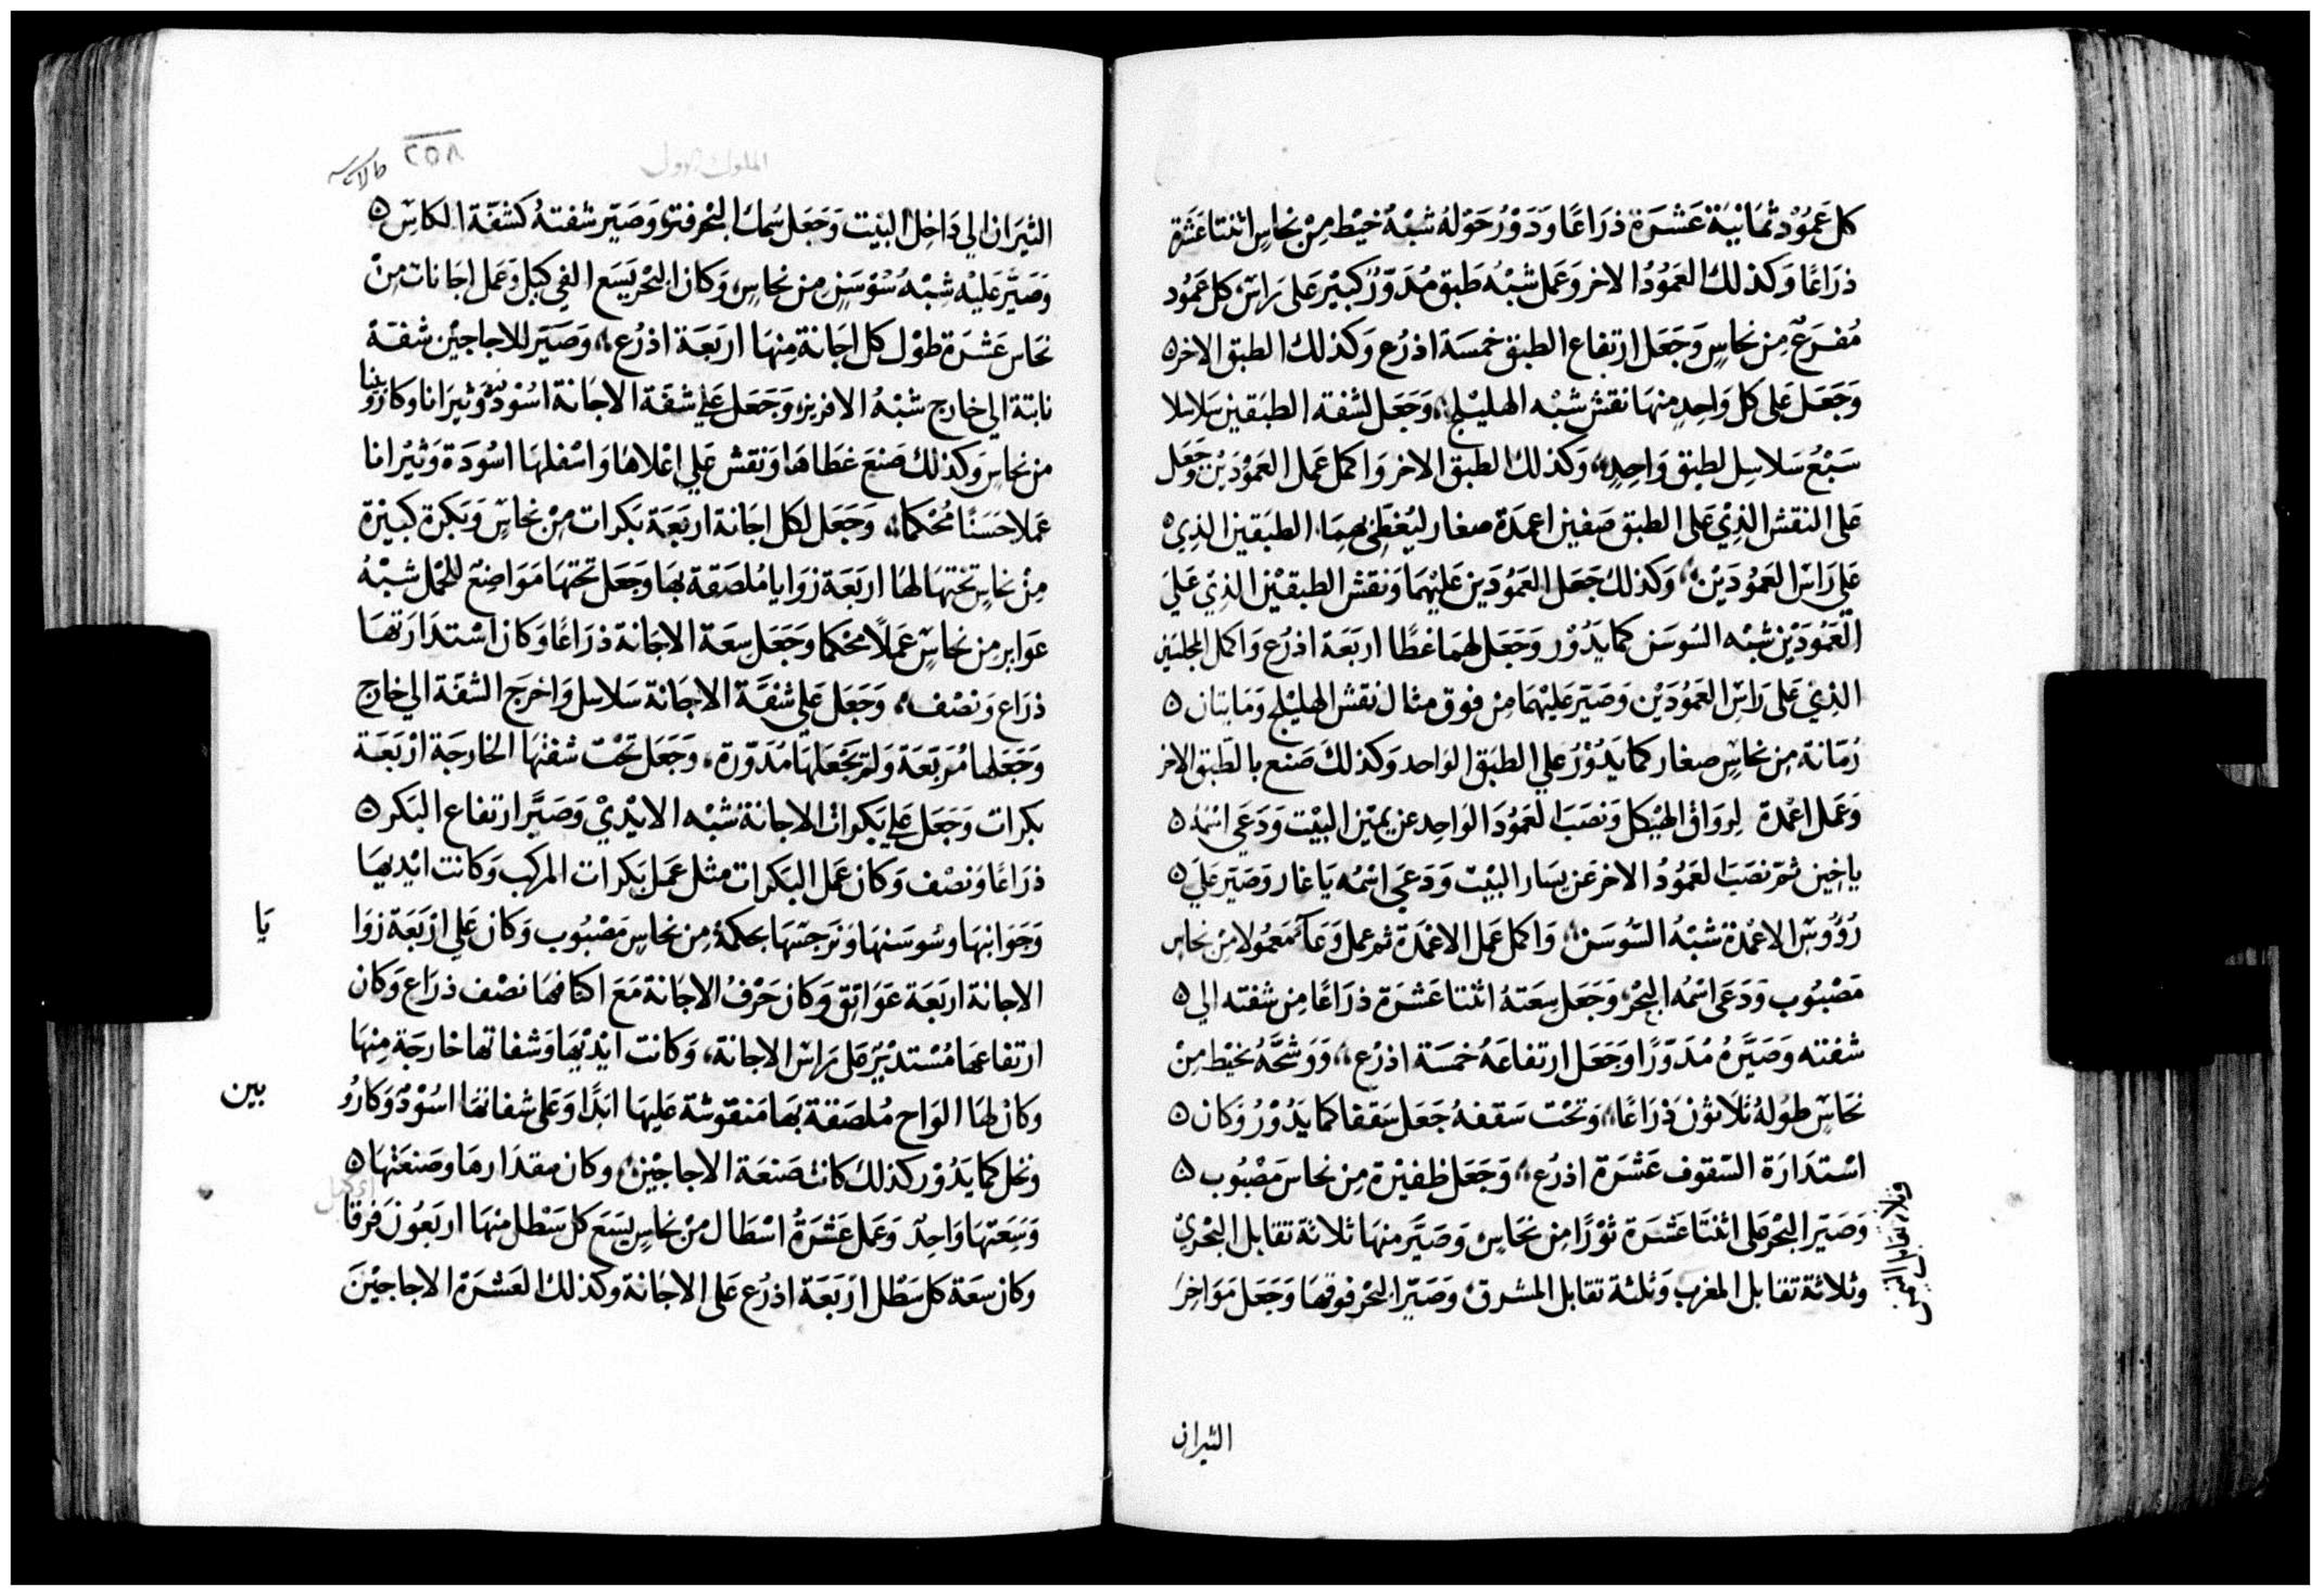 كل عَمُوْد ثمَانيَة عَشَرَة ذرَاعًا وَدَوْرُ حَوْلهُ شبْهُ خيْط مِنْ نحاسٍ اثنتا عَشَرة
ذرَاعًا وَكذلك العَمُودُ الاخر وَعَمل شبْهُ طَبق مُدَوّرٌ كبيْر عَلى رَاسْ كل عَمُود
مُفرَع مِن نحاسٍ وَجَعَل ارتفاع الطبق خمسَة اذرُع وَكذلك الطبق الاخر
وَجَعَل عَلى كل وَاحِدٍ منهَا نقش شبْه الهليلج وَجَعَل لشفته الطبَقين سَلاسلا
سَبْعُ سَلاسِل لطبق وَاحِدٍ وَكذلك الطبق الاخر وَاكمل عَمل العَمُوْدَيْن وَجَعَل
عَلى النقش الذِيْ عَلى الطبق صَفين اعمِدَة صغار ليُغطى بهمَا الطبَقين الذِي
عَلي رَاسْ العَمُودَيْن وَكذلك جَعَل العَمُودَين عَليْهمَا وَنقش الطبقيْن الذِيْ عَليَ
العَمُودَيْن شبْه السَوسَن كمَا يَدُوْر وَجَعَل لهمَا غطًا اربَعَة اذرُع وَاكمل المجلسَين
الذِيْ عَلى رَاسْ العَمُودَيْن وَصَيّر عَليْهمَا مِن فوق مثال نقش الهليْلج وَمَايتان
رُمّانة مِن نحاسٍ صغار كمَا يَدُوْرُ عَلي الطبَق الوَاحد وَكذلكَ صَنع بالطَبق الاخر
وَعَمل اعْمدَة لروَاق الهيْكل وَنصَبَ العَمُودَ الوَاحِد عن يمْين البيْت وَدَعَى اسْمُهُ
ياخين ثمّ نصَبَ العَمُودُ الاخر عَن يسَار البيْت وَدَعَي اسْمُه يَاغار وَصَيّر عَلَي
رُؤُوسْ الاعْمدَة شبْهُ السَّوسَن وَاكمل عَمل الاعْمَدَة ثم عمل وَعَآ مَعمُولا مِنْ نحاس
مَصْبُوب وَدَعَى اسْمُه البحْر وَجَعَل سِعَتهُ اثنتا عَشَرَة ذرَاعًا مِن شفته الي
شفته وَصَيَّرهُ مُدَوّرًا وَجَعَل ارتفاعَهُ خمسَة اذرُع وَوَشحَّهُ بخيْط مِنْ
نحَاسٍ طوُلهُ ثلاثوْن ذرَاعًا وَتحْت سَقفهُ جَعَل سَقفا كمَا يَدُوْرُ وَكان
اسْتدَارَة السّقوف عَشَرَة اذرُع وَجَعَل ظفيْرة مِن نحاس مَصْبُوب
وَصَيّر البَحْر عَلى اثنتَا عَشَرَة ثوْرًا مِن نحَاسٍ وَصَيَّر منهَا ثلاثة تقابل البَحْري
وثلاثة تقابل المغرب وَثلثة تقابل المشرق وَصَيّر البحْر فوقهَا وَجَعَل مَوَاخِرَ
الثيران
الملوك الاول
٢٥٨
الثيَران الي دَاخِل البيَت وَجَعَل سُمك البْحر فتر وَصَيّر شفتهُ كشفّة الكاسْ
وَصَيَّر عَليْه شِبْهُ سُوْسَنٍ مِن نحاسٍ وَكان البَحْر يَسَع الفي كيل وَعَمل اجَانات مِنْ
نحَاس عَشرَة طوْل كل اجَانة مِنهَا اربَعَة اذرُع وَصَيّر للاجاجيْن شفة
نابتة الي خارج شبْهُ الافريز وَجَعَل عَلي شفة الاجَانة اسُوْدٌ وَثيَرانا وكارُوبينا
من نحاسٍ وَكذلك صَنعَ غطَاهَا وَنقش عَلي اعْلاهَا وَاسْفلهَا اسُودَة وَثيْرانا
عَملا حَسَنًا مُحْكما وَجَعَل لكل اجَانة اربَعَة بَكرات مِنْ نحاسٍ وَبَكرة كبيْرة
مِنْ نحاسٍ تحتهَا لهَا اربَعَة زوَايا مُلصَقة بهَا وَجَعَل تحتهَا مَوَاضِعْ للحْمل شبْهُ
عوَابر من نحاسٍ عَملاً محْكما وَجَعَل سِعَة الاجَانة ذرَاعًا وَكان اسْتدَارَتهَا
ذرَاع وَنصْف وَجَعَل عَلي شفَّة الاجَانة سَلاسل وَاخرَج الشفة الي خارج
وَجَعَلهَا مُربّعَة وَلمْ يَجْعَلهَا مُدَوّرة وَجَعَل تحْت شفتهَا الخارجَة ارْبَعَة
بكرات وَجَعَل عَلي بَكرات الاجانة شبْه الايْدِيْ وَصَيَّر ارتفاع البَكر
ذرَاعًا وَنصْف وَكان عَمل البَكرات مثل عَمَل بَكرات المرْكب وَكانت ايْديهَا
وَجَوَانبَهَا وَسُوسَنهَا وَنرجسَهَا بحكمَة مِن نحاسٍ مَصْبُوب وَكان عَلي ارْبَعَة زوَا
يَا
الاجانة اربَعَة عَوَاتِق وَكان حَرْفُ الاجَانة مَعَ اكتافهَا نصْف ذرَاع وَكان
ارتفاعهَا مُسْتديْرٌ عَلى رَاسْ الاجانة وَكانت ايْديْهَا وَشفاتهَا خارجَة مِنهَا
وكان لهَا الوَاح مُلصَقة بهَا مَنقوشة عَليهَا ابَدًا وَعَلى شفاتهَا اسُوْدٌ وَكارُو
بين
ونخل كمَا يَدُوْر كذلك كانت صَنعَة الاجاجيْن وكان مقدَارهَا وصَنعَتهَا
وَسَعَتهَا وَاحِدٌ وَعَمل عَشْرَةُ اسْطال مِنْ نحاسٍ يسَعَ كل سَطل منهَا اربَعُونَ فرقا
وَكان سِعَة كل سَطل اَرْبَعَة اذرُع عَلى الاجَانة وكذلك العَشرَة الاجاجيْنَ